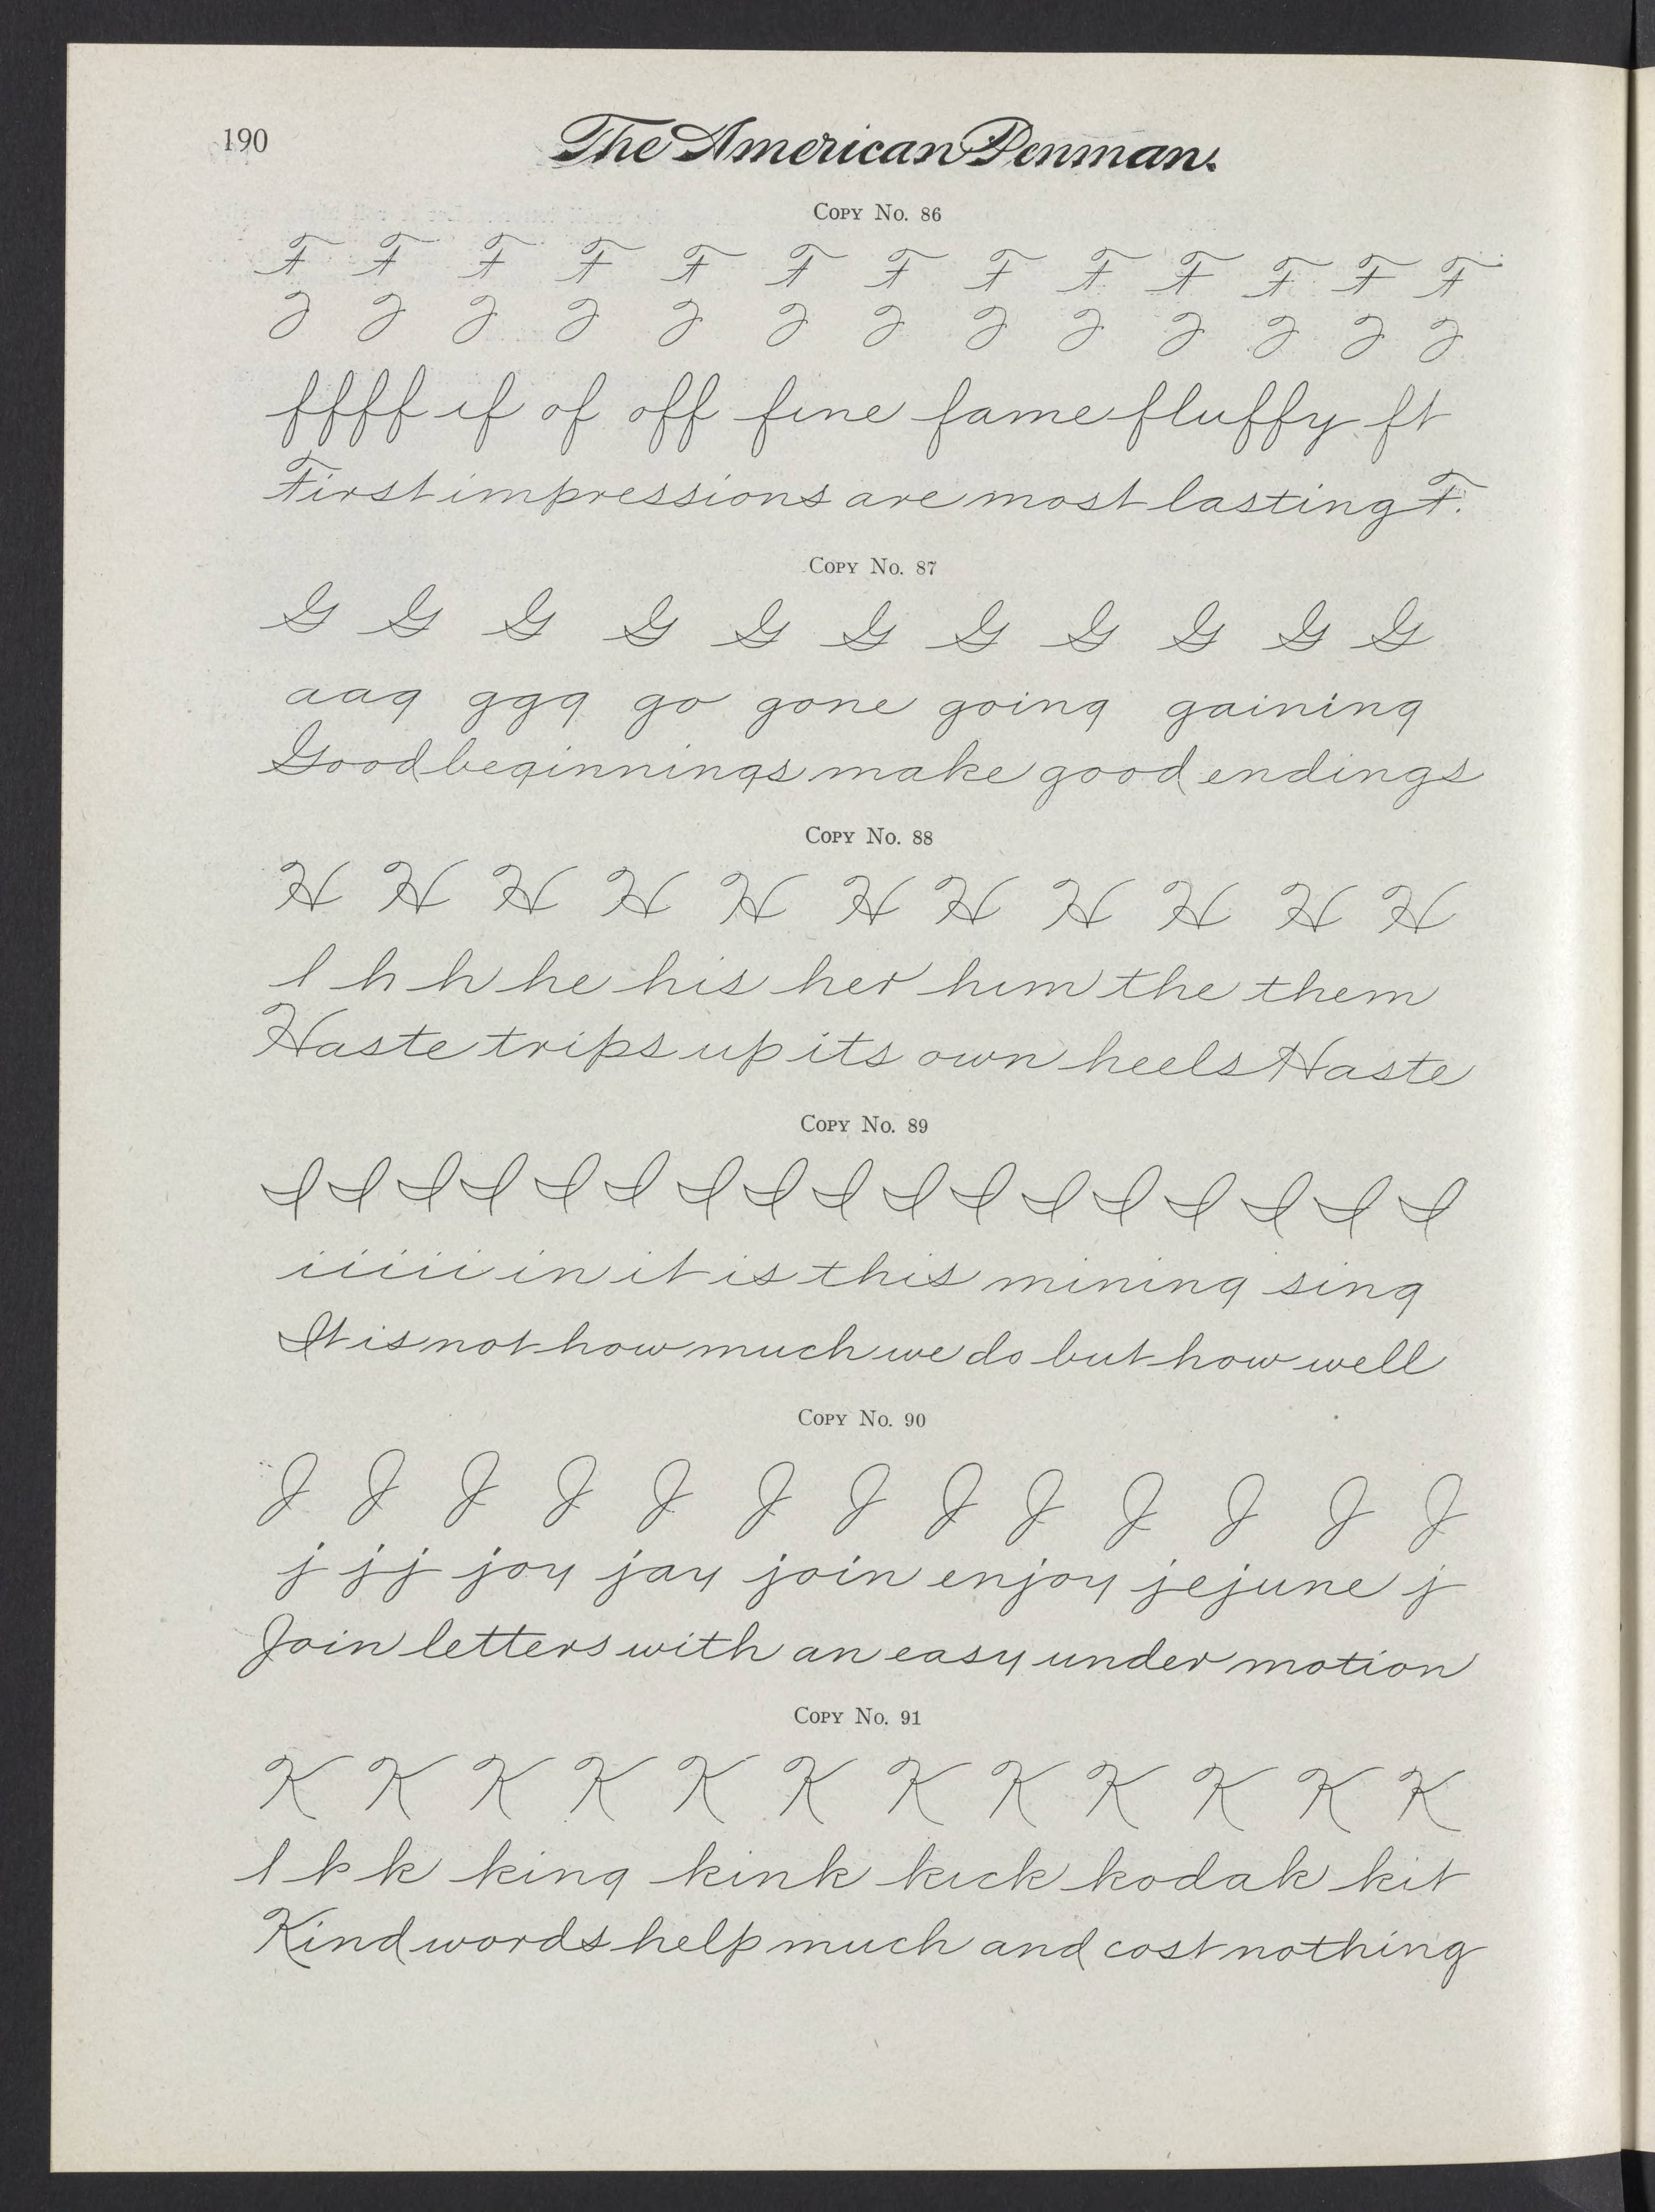 190
The American Penman.
Copy No. 86
F F F F F F F F F F F F F
f f f f if of off fine fame fluffy ft
First impressions are most lasting F.
Copy No. 87
G G G G G G G G G G G
a a g g g g go gone going gaining
Good beginnings make good endings
Copy No. 88
H H H H H H H H H H H
l h h he his her him the them
Haste trips up its own heels Haste
Copy No. 89
I I I I I I I I I I I I I I I I I
i i i i i in it is this mining sing
It is not how much we do but how well
Copy No. 90
J J J J J J J J J J J J J
j j j joy jay join enjoy jejune j
Join letters with an easy under motion
Copy No. 91
K K K K K K K K K K K K
l k k king kink kick kodak kit
Kind words help much and cost nothing